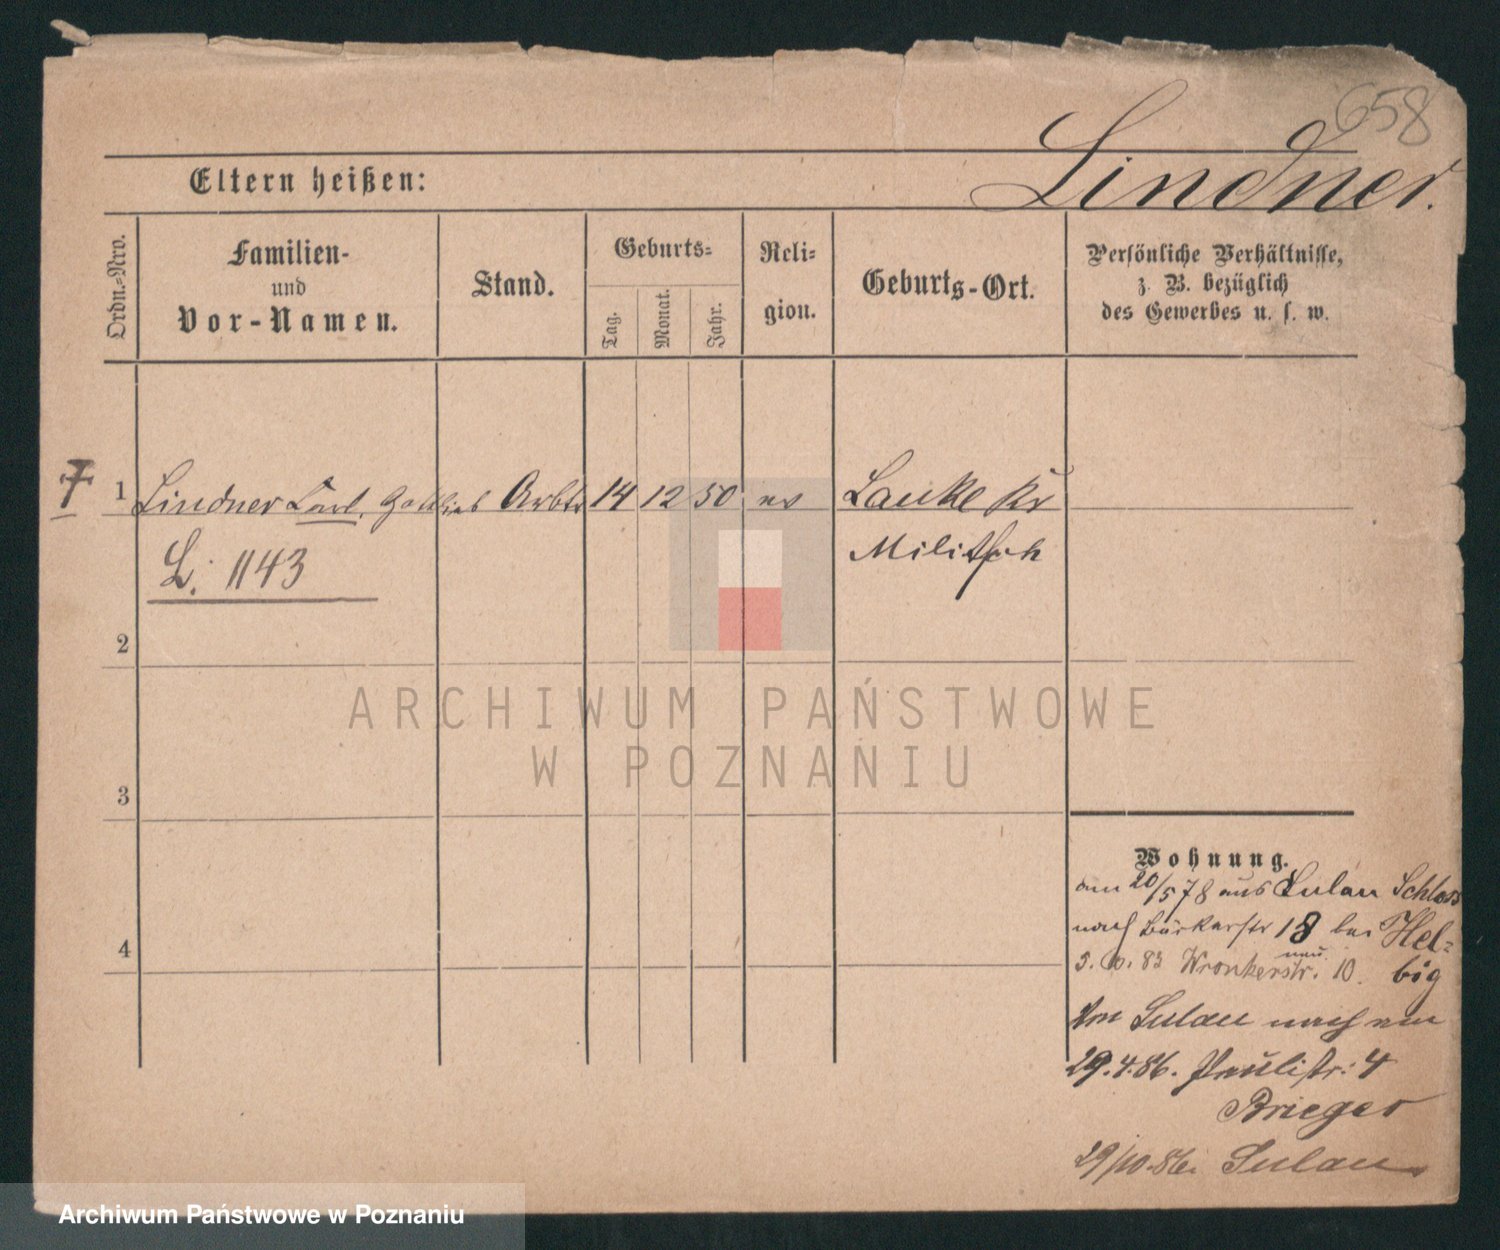 658
Lindner.
Eltern heißen:
Ordn.-Nro.
Familien-
und
Vor-Namen.
Stand.
Geburts-
Tag.
Monat.
Jahr.
Reli-
gion.
Geburts-Ort.
Persönliche Verhältnisse,
z. B. bezüglich
des Gewerbes u. s. w.
1 Lindner Carl, Gottlieb Arbtr 14 12 50 ev Lauke Kr
Militsch
L. 1143
2
3
4
Wohnung.
am 20/5 78 aus Sulau Schloss
nach Bäckerstr 18 bei Hel-
big
5. 10. 83 Wronkerstr. 10.
neu
Von Sulau nach am
29.4.86. Paulistr: 4
Brieger
29/10.86. Sulau
ARCHIWUM PAŃSTWOWE
W POZNANIU
Archiwum Państwowe w Poznaniu